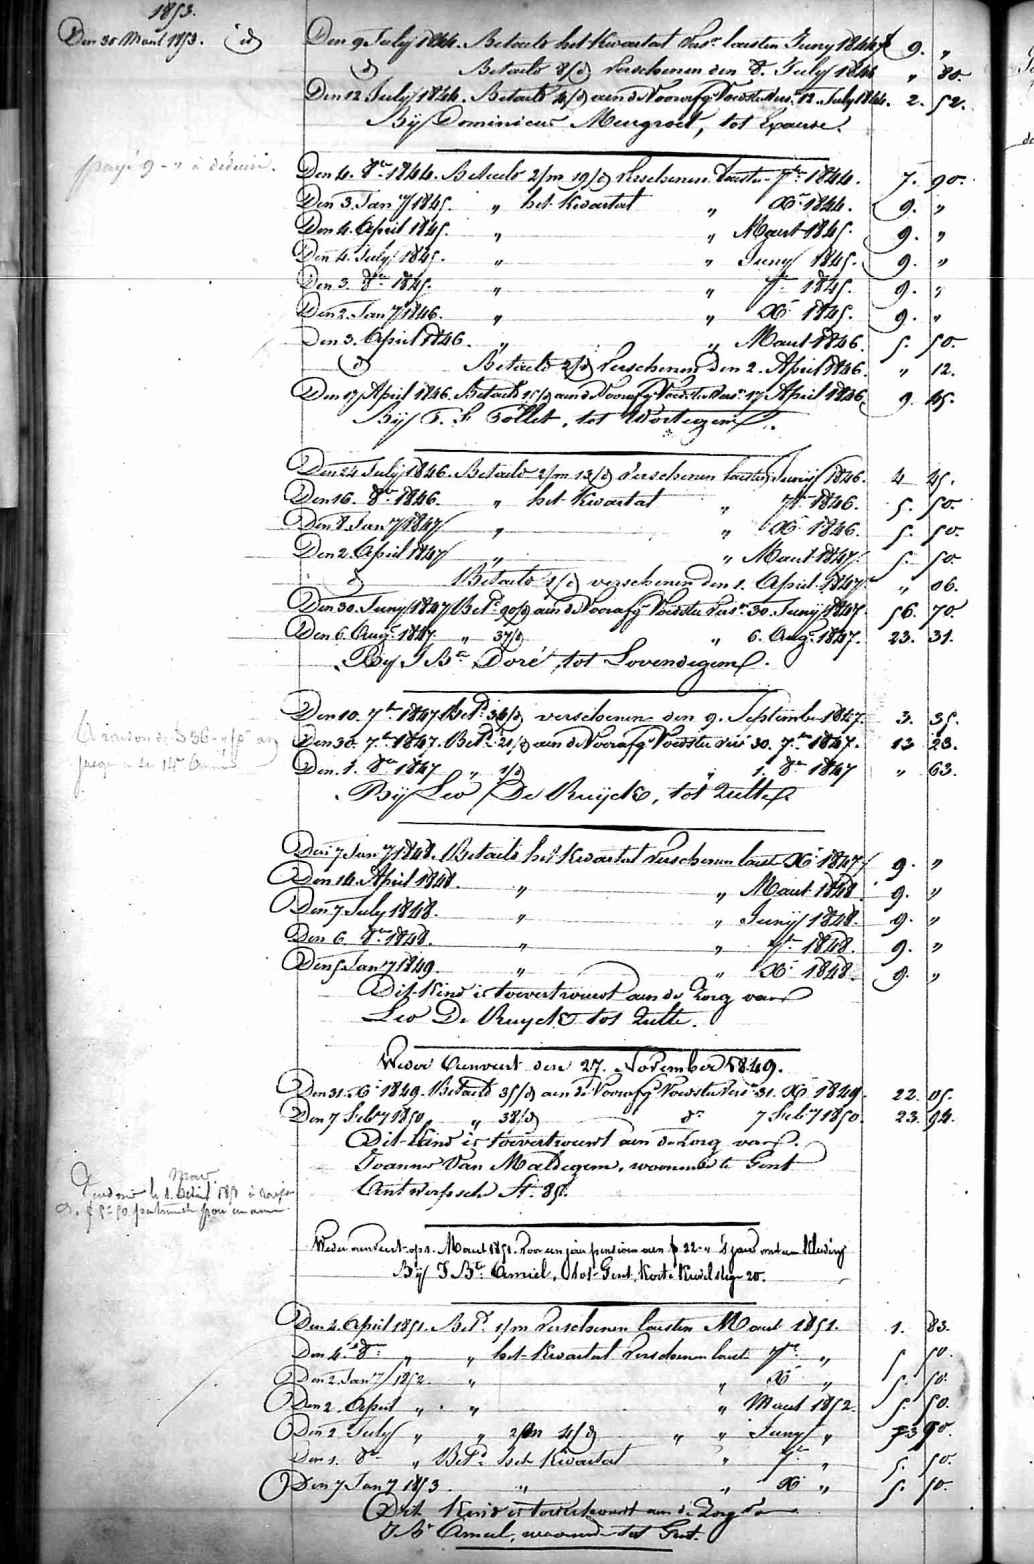 1853.
Den 30 Maart 1853. id
Den 9 July 1844. Betaeld het Kwartael Vers.n laesten Juny 1844 9. "
d Betaeld 8/d Verschenen den 8. July 1844 " 80.
Den 12 July 1844. Betaeld 4/d aen de Voorafg. Voedster Vers. 12 July 1844. 2. 52.
Bij Dominicus Meugroet, tot Exaerde.
payé 9 - " à déduire.
Den 4. 8.re 1844. Betaeld 2/m 19/d Verschenen laesten 7.re 1844. 7. 90.
Den 3. Jan.ry 1845. " het Kwartael " X.re 1844. 9. "
Den 4. April 1845. " " Maert 1845. 9. "
Den 4. July 1845. " " Juny 1845. 9. "
Den 3. 8.re 1845. " " 7.re 1845. 9. "
Den 2. Jan.ry 1846. " " X.re 1845. 9. "
Den 3. April 1846. " " Maert 1846. 5. 50.
d Betaeld 2/d Verschenen den 2. April 1846. " 12.
Den 17 April 1846. Betaeld 15/d aen de Voorafg. Voedster Vers.n 17 April 1846. 9. 45.
Bij F. F. Follet, tot Wortegem.
Den 24 July 1846. Betaeld 2/m 13/d Verschenen laesten Junij 1846. 4 45.
Den 16. 8.re 1846. " het Kwartael " 7.re 1846. 5. 50.
Den 8. Jan.ry 1847 " " X.re 1846. 5. 50.
Den 2. April 1847 " " Maert 1847. 5. 50.
d Betaeld 1/d verschenen den 1. April 1847 " 06.
Den 30. Juny 1847 Bet.d 90/d aen de Voorafg. Voedster Vers.n 30. Junij 1847. 56. 70
Den 6. Aug. 1847. " 37/d " 6. Aug. 1847. 23. 31.
Bij J. B.te Doré, tot Lovendegem.
Den 10. 7.re 1847 Bet.d 34/d verschenen den 9. September 1847. 3. 35.
A raison de f 36 - " p.r an
jusqu'à la 14.e Année
Den 30. 7.re 1847. Bet.d 21/d aen de Voorafg. Voedster vers. 30. 7.re 1847. 13 23.
Den. 1. 8.re 1847 " 1/d " 1. 8.re 1847 " 63.
Bij Leo De Ruijcke, tot Zulte.
Den 7 Jan.ry 1848. Betaeld het Kwartael Verschenen laest X.re 1847 9. "
Den 14. April 1848. " " Maert 1848 9. "
Den 7 July 1848. " " Junij 1848. 9. "
Den 6. 8.re 1848. " " 7.re 1848. 9. "
Den 5 Jan.ry 1849. " " X.re 1848. 9. "
Dit Kind is toevertrouwt aen de Zorg van
Leo De Ruycke tot Zulte.
Weder Aenveert den 27. November 1849.
Den 31. X.re 1849. Betaeld 35/d aen de Voorafg. Voedster Vers.n 31. X.re 1849. 22. 05.
Den 7 Feb.ry 1850 " 38/d d.o 7 Feb.ry 1850. 23. 94.
Dit Kind is toevertrouwt aen de Zorg van
Joanna Van Maldegem, woonende te Gent
Antwerpsche St. 85.
Weder aenveert op 1. Maert 1851. Voor een jaer pensioen aen f 22 - " 's jaers met een Kleeding
Bij J. B.te Amiel, tot Gent, Korte Kruisstege 20.
Den 2. April 1851. Bet.d 1/m Verschenen laesten Maert 1851. 1. 83.
Den 4. 8.re " " het Kwartael Verschenen laest 7.re " 5 50.
Den 2. Jan.ry 1852. " " X.re " 5. 50.
Den 2. April " " " Maert 1852. 5. 50.
Den 2. July " " 2/m 4/d " " Juny " 3 90.
Den 1. 8.re " Bet.d het Kwartael " 7.re " 5. 50.
Den 7 Jan.ry 1853 " " X.re " 5. 50.
Dit Kind is toevertrouwt aen de Zorg van
J. B.te Amiel, woonende tot Gent.